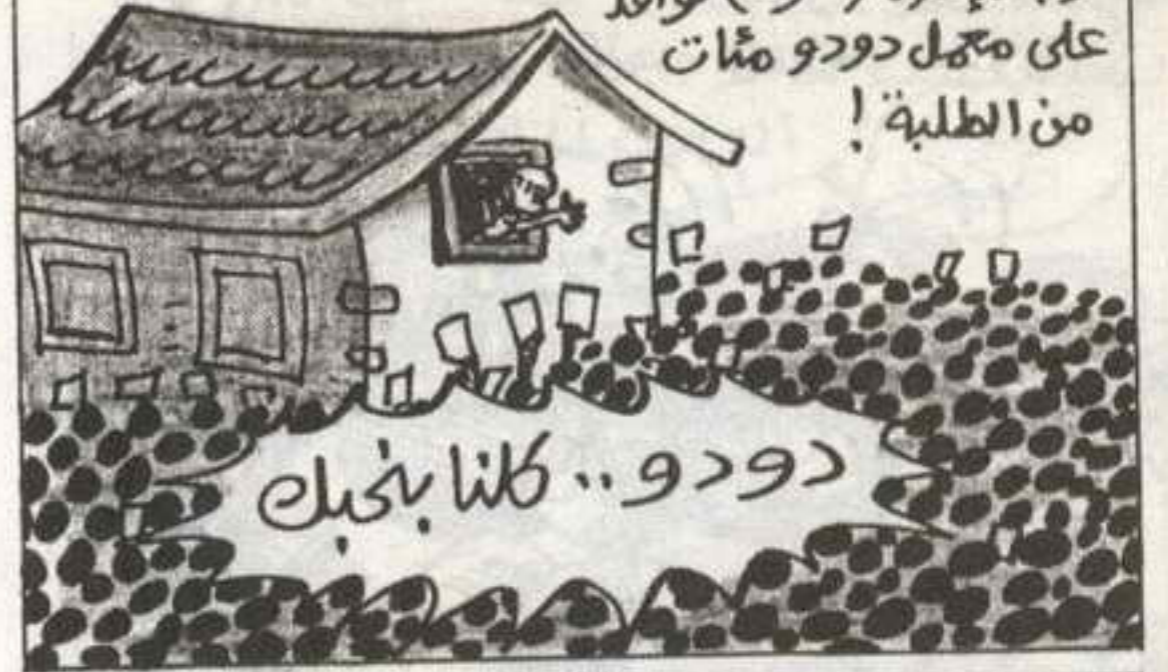 على معمل دودو مئات
من الطلبة !
دودو.. كلنا بنحبك